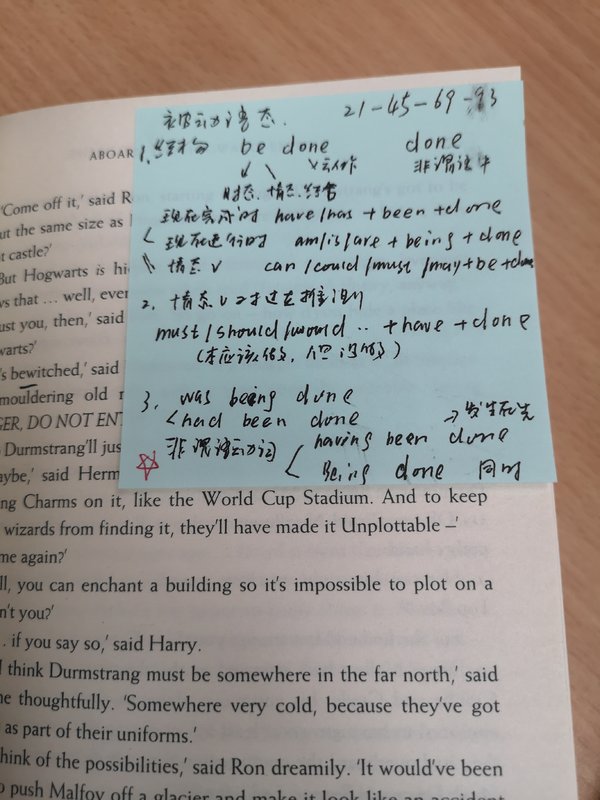 被动语态.
21-45-69-93
1. 结构 be done done
动作 非谓语中
时态.情态.结合
现在完成时 have/has + been + done
现在进行时 am/is/are + being + done
情态 v can/could/must/may + be + done
2. 情态 v 对过去推测
must/should/would .. + have + done
(本应该做, 但没做)
3. was being done
had been done → 发生在先
非谓语动词 having been done
Being done 同时
ABOAR
'Come off it,' said Ron
ut the same size as
castle?'
But Hogwarts is hi
ws that ... well, ever
ust you, then,' said
warts?'
's bewitched,' said
mouldering old r
GER, DO NOT ENT
Durmstrang'll jus
aybe,' said Herm
ng Charms on it, like the World Cup Stadium. And to keep
wizards from finding it, they'll have made it Unplottable –'
me again?'
ll, you can enchant a building so it's impossible to plot on a
n't you?'
. if you say so,' said Harry.
I think Durmstrang must be somewhere in the far north,' said
ne thoughtfully. 'Somewhere very cold, because they've got
as part of their uniforms.'
hink of the possibilities,' said Ron dreamily. 'It would've been
o push Malfoy off a glacier and make it look like an accident